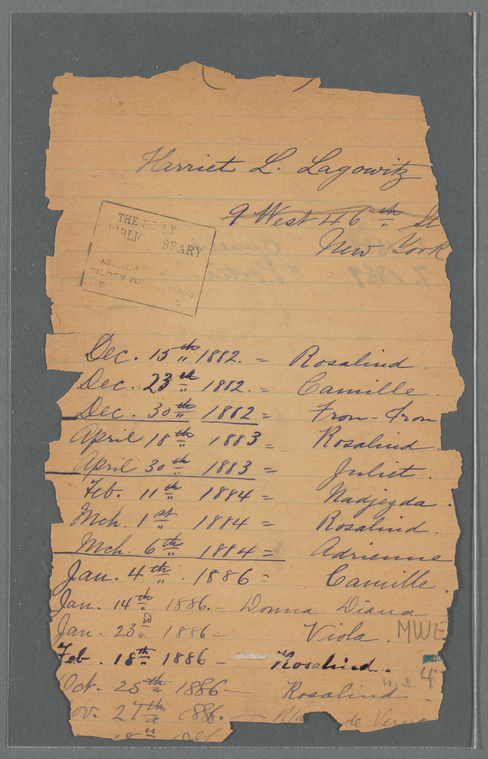 Harriet L. Lagowitz
9 West 46th St
New York
THE NEW Y
PUBLI BRARY
ASTOR, L
TILDEN FOUNDATIONS
R
Dec. 15th 1882. = Rosalind
Dec. 23rd 1882. = Camille
Dec. 30th 1882 = Frou-Frou
April 18th 1883 = Rosalind
April 30th 1883 = Juliet.
Feb. 11th 1884 = Nadjezda.
Mch. 1st 1884 = Rosalind.
Mch. 6th 1884 = Adrienne
Jan. 4th 1886 = Camille.
Jan. 14th 1886. - Donna Diana
Jan. 23rd 1886 - Viola. MWE
Feb. 18th 1886 - Rosalind.
n.c. 4
Oct. 25th 1886 - Rosalind
ov. 27th 1886. - de
18